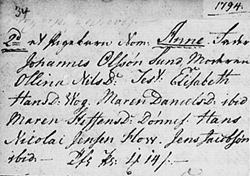 34 1794.
2d et Pigebarn Nom: Anne. Fader
Johannes Olssön Sund Moderen
Ollina Nilsd: Test: Elisabeth
Hansd: Wog. Maren Danielsd ibid
Maren Steffensd: Dönnes. Hans
Nicolai Jensen Flow. Jens Jacobsön
ibid